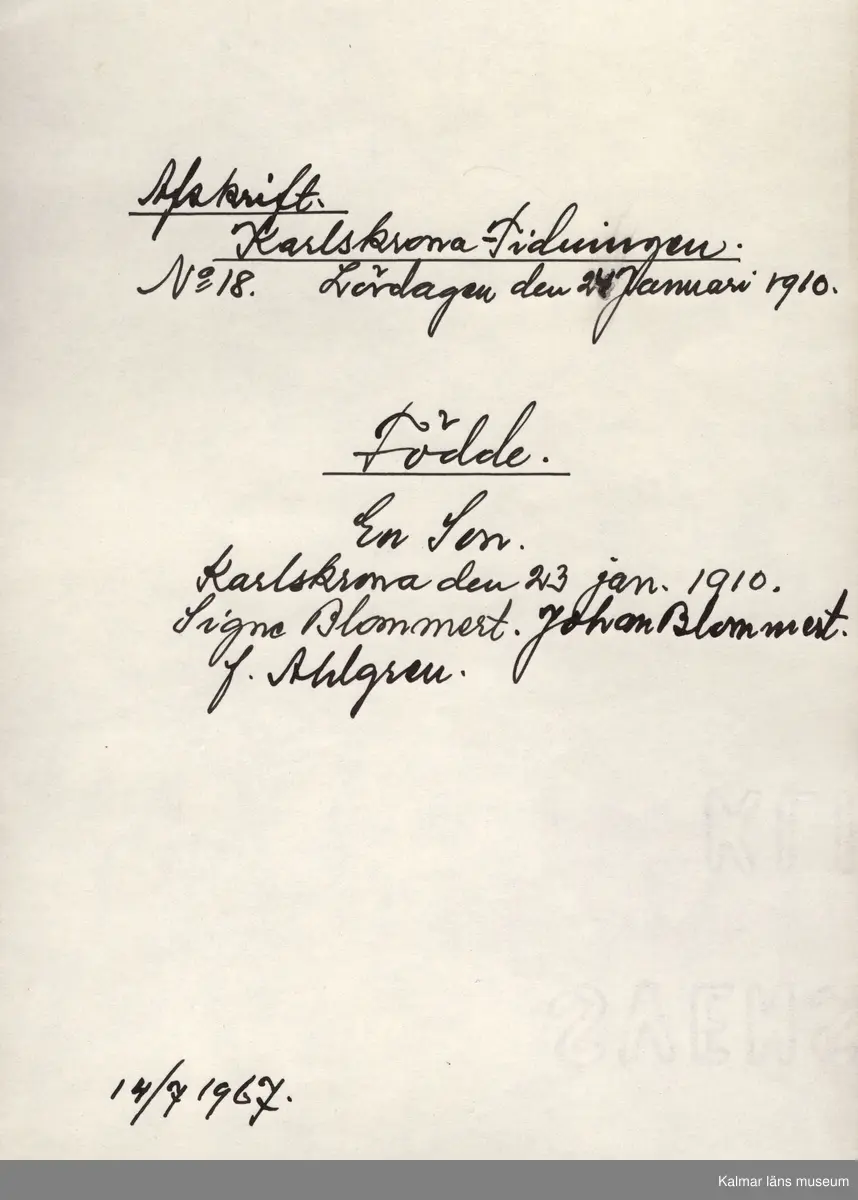 Afskrift.
Karlskrona-Tidningen.
No 18. Lördagen den 24 Januari 1910.
Födde.
En Son.
Karlskrona den 23 jan. 1910.
Signe Blommert. Johan Blommert.
f. Ahlgren.
14/7 1967.
Kalmar läns museum